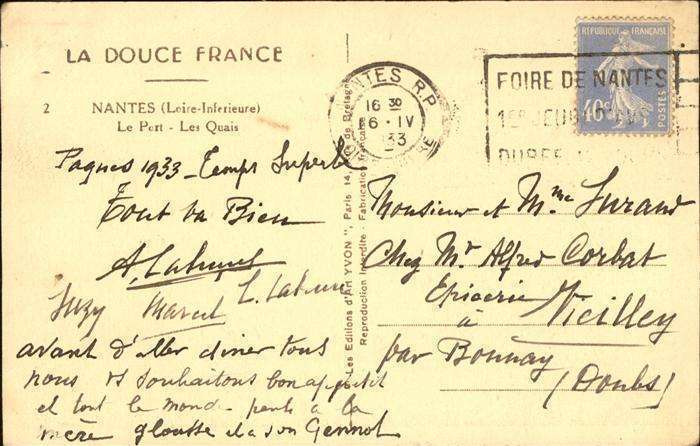 LA DOUCE FRANCE
2 NANTES (Loire-Inférieure)
Le Port - Les Quais
Paques 1933 - Temps Superbe
Tout va Bien
Suzy Marcel L.
avant d'aller diner tous
nous vs souhaitons bon appetit
et tout le monde pense à la
mère glousse et a son
Les Editions d'Art "YVON", Paris 14, de Bretagne
Reproduction Interdite - Fabrication française
NANTES R.P.
16 30
6 · IV
33
FOIRE DE NANTES
1er JEUDI
DUREE
REPUBLIQUE FRANÇAISE
40c
POSTES
Monsieur et Mme
Chez Mr Alfred Corbat
Epicerie
à Vieilley
par Bonnay
(Doubs)